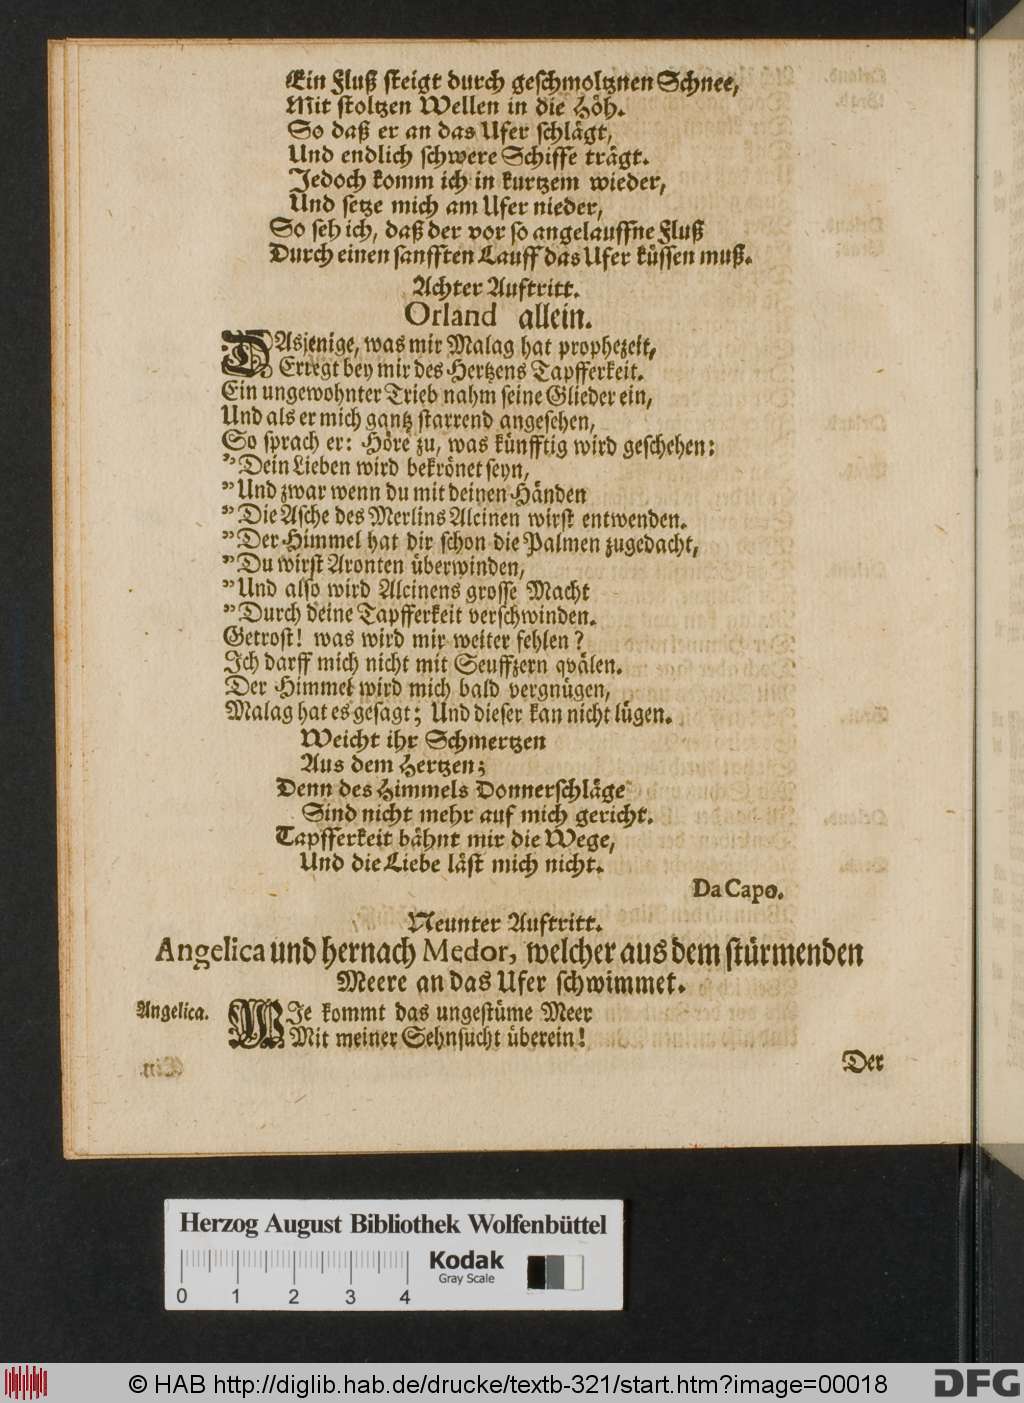 Ein Fluß steigt durch geschmoltznen Schnee,
Mit stoltzen Wellen in die Höh.
So daß er an das Ufer schlägt,
Und endlich schwere Schiffe trägt.
Jedoch komm ich in kurtzem wieder,
Und setze mich am Ufer nieder,
So seh ich, daß der vor so angelauffne Fluß
Durch einen sanfften Lauff das Ufer küssen muß.
Achter Auftritt.
Orland allein.
DAsjenige, was mir Malag hat prophezeit,
Erregt bey mir des Hertzens Tapfferkeit.
Ein ungewohnter Trieb nahm seine Glieder ein,
Und als er mich gantz starrend angesehen,
So sprach er: Höre zu, was künfftig wird geschehen:
" Dein Lieben wird bekrönet seyn,
" Und zwar wenn du mit deinen Händen
" Die Asche des Merlins Alcinen wirst entwenden.
" Der Himmel hat dir schon die Palmen zugedacht,
" Du wirst Aronten überwinden,
" Und also wird Alcinens grosse Macht
" Durch deine Tapfferkeit verschwinden.
Getrost! was wird mir weiter fehlen?
Ich darff mich nicht mit Seuffzern qvälen.
Der Himmel wird mich bald vergnügen,
Malag hat es gesagt; Und dieser kan nicht lügen.
Weicht ihr Schmertzen
Aus dem Hertzen;
Denn des Himmels Donnerschläge
Sind nicht mehr auf mich gericht.
Tapfferkeit bähnt mir die Wege,
Und die Liebe läst mich nicht.
Da Capo.
Neunter Auftritt.
Angelica und hernach Medor, welcher aus dem stürmenden
Meere an das Ufer schwimmet.
Angelica. WIe kommt das ungestüme Meer
Mit meiner Sehnsucht überein!
Der
Herzog August Bibliothek Wolfenbüttel
Kodak
Gray Scale
0 1 2 3 4
© HAB http://diglib.hab.de/drucke/textb-321/start.htm?image=00018
DFG